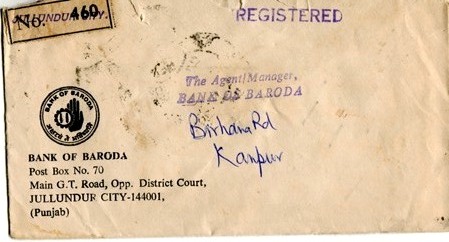 JULLUNDUR CITY.
No. 460
REGISTERED
The Agent/Manager,
BANK OF BARODA
Birhana Rd
Kanpur
BANK OF BARODA
BANK OF BARODA
Post Box No. 70
Main G.T. Road, Opp. District Court,
JULLUNDUR CITY-144001,
(Punjab)